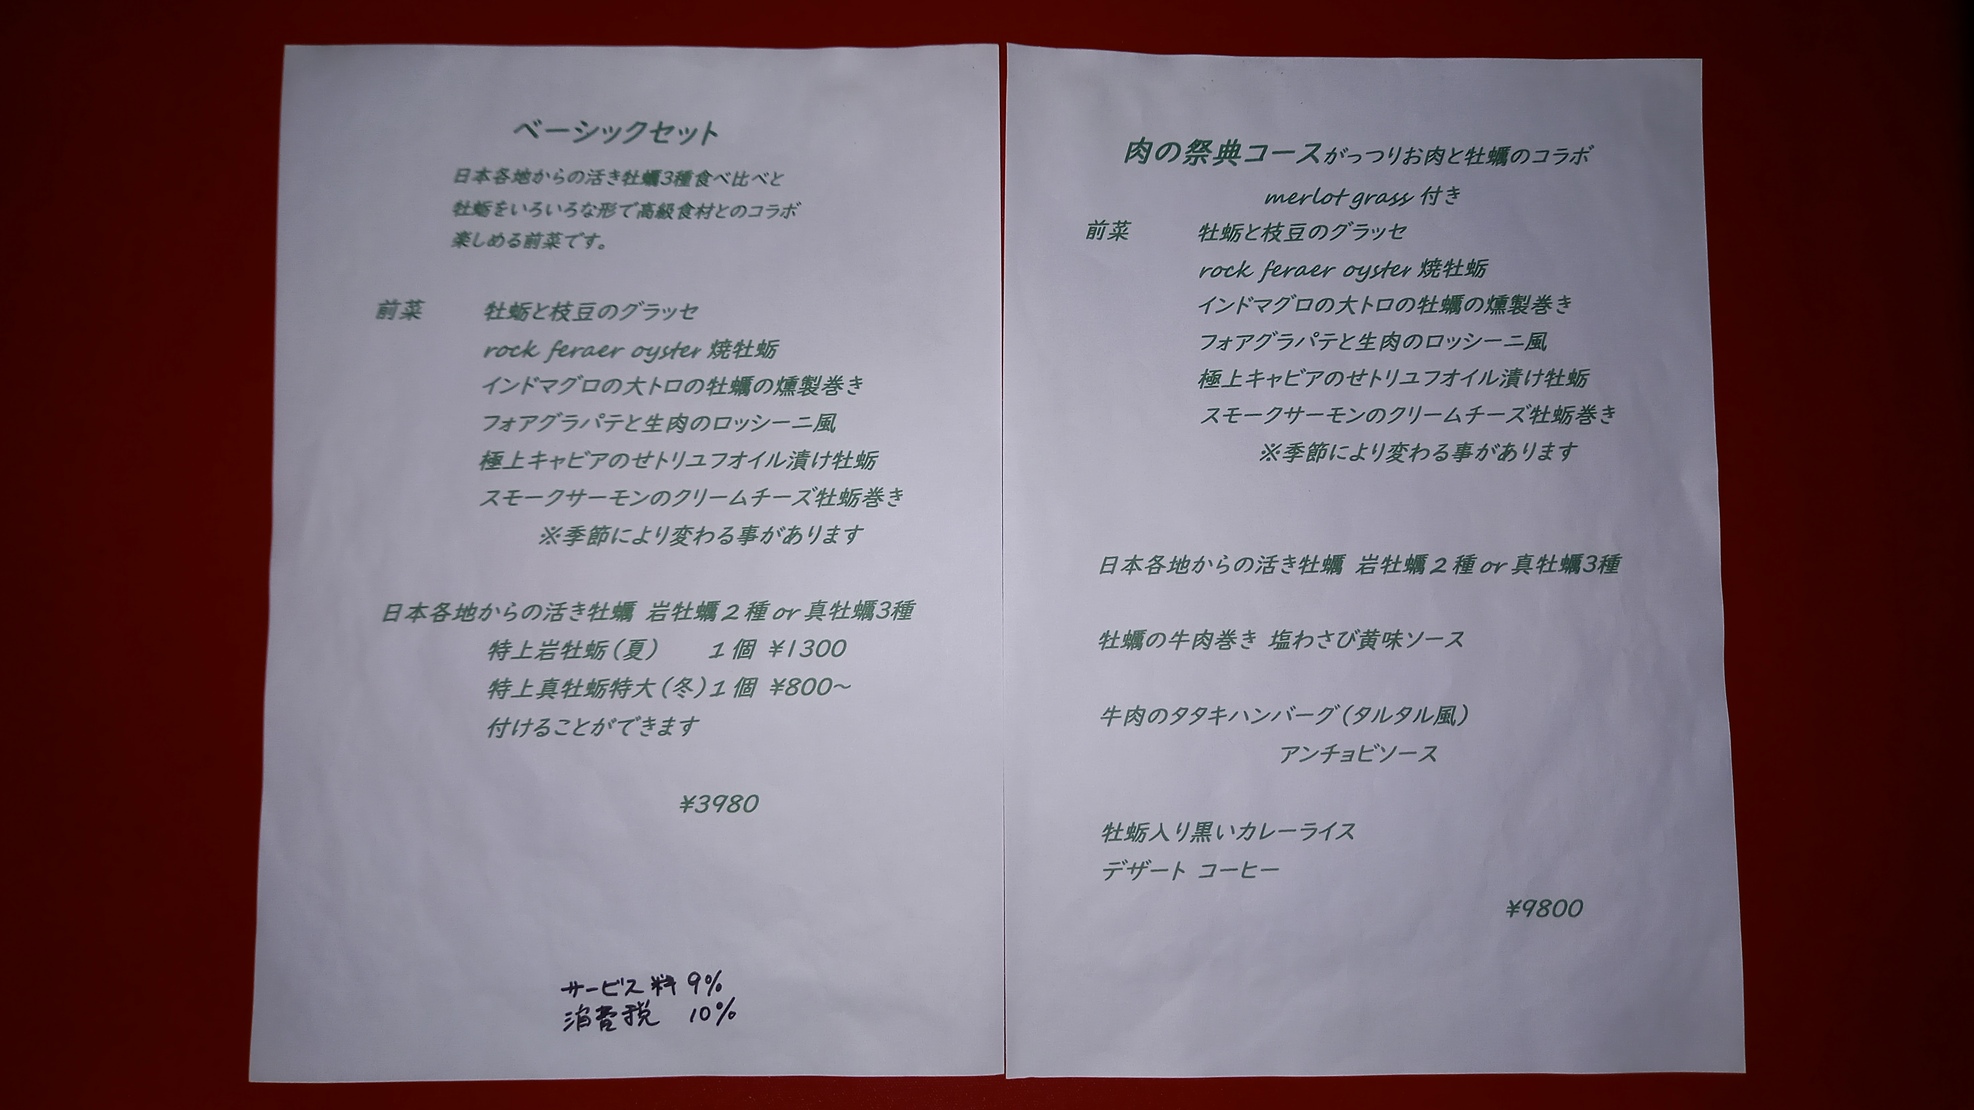 ベーシックセット
日本各地からの活き牡蠣3種食べ比べと
牡蛎をいろいろな形で高級食材とのコラボ
楽しめる前菜です。
前菜 牡蛎と枝豆のグラッセ
rock feraer oyster 焼牡蛎
インドマグロの大トロの牡蠣の燻製巻き
フォアグラパテと生肉のロッシーニ風
極上キャビアのせトリュフオイル漬け牡蛎
スモークサーモンのクリームチーズ牡蛎巻き
※季節により変わる事があります
日本各地からの活き牡蠣 岩牡蠣２種 or 真牡蠣3種
特上岩牡蛎（夏） １個 ¥1300
特上真牡蛎特大（冬）１個 ¥800～
付けることができます
¥3980
サービス料 9%
消費税 10%
肉の祭典コースがっつりお肉と牡蠣のコラボ
merlot grass 付き
前菜 牡蛎と枝豆のグラッセ
rock feraer oyster 焼牡蛎
インドマグロの大トロの牡蠣の燻製巻き
フォアグラパテと生肉のロッシーニ風
極上キャビアのせトリュフオイル漬け牡蛎
スモークサーモンのクリームチーズ牡蛎巻き
※季節により変わる事があります
日本各地からの活き牡蠣 岩牡蠣２種 or 真牡蠣3種
牡蠣の牛肉巻き 塩わさび黄味ソース
牛肉のタタキハンバーグ（タルタル風）
アンチョビソース
牡蛎入り黒いカレーライス
デザート コーヒー
¥9800